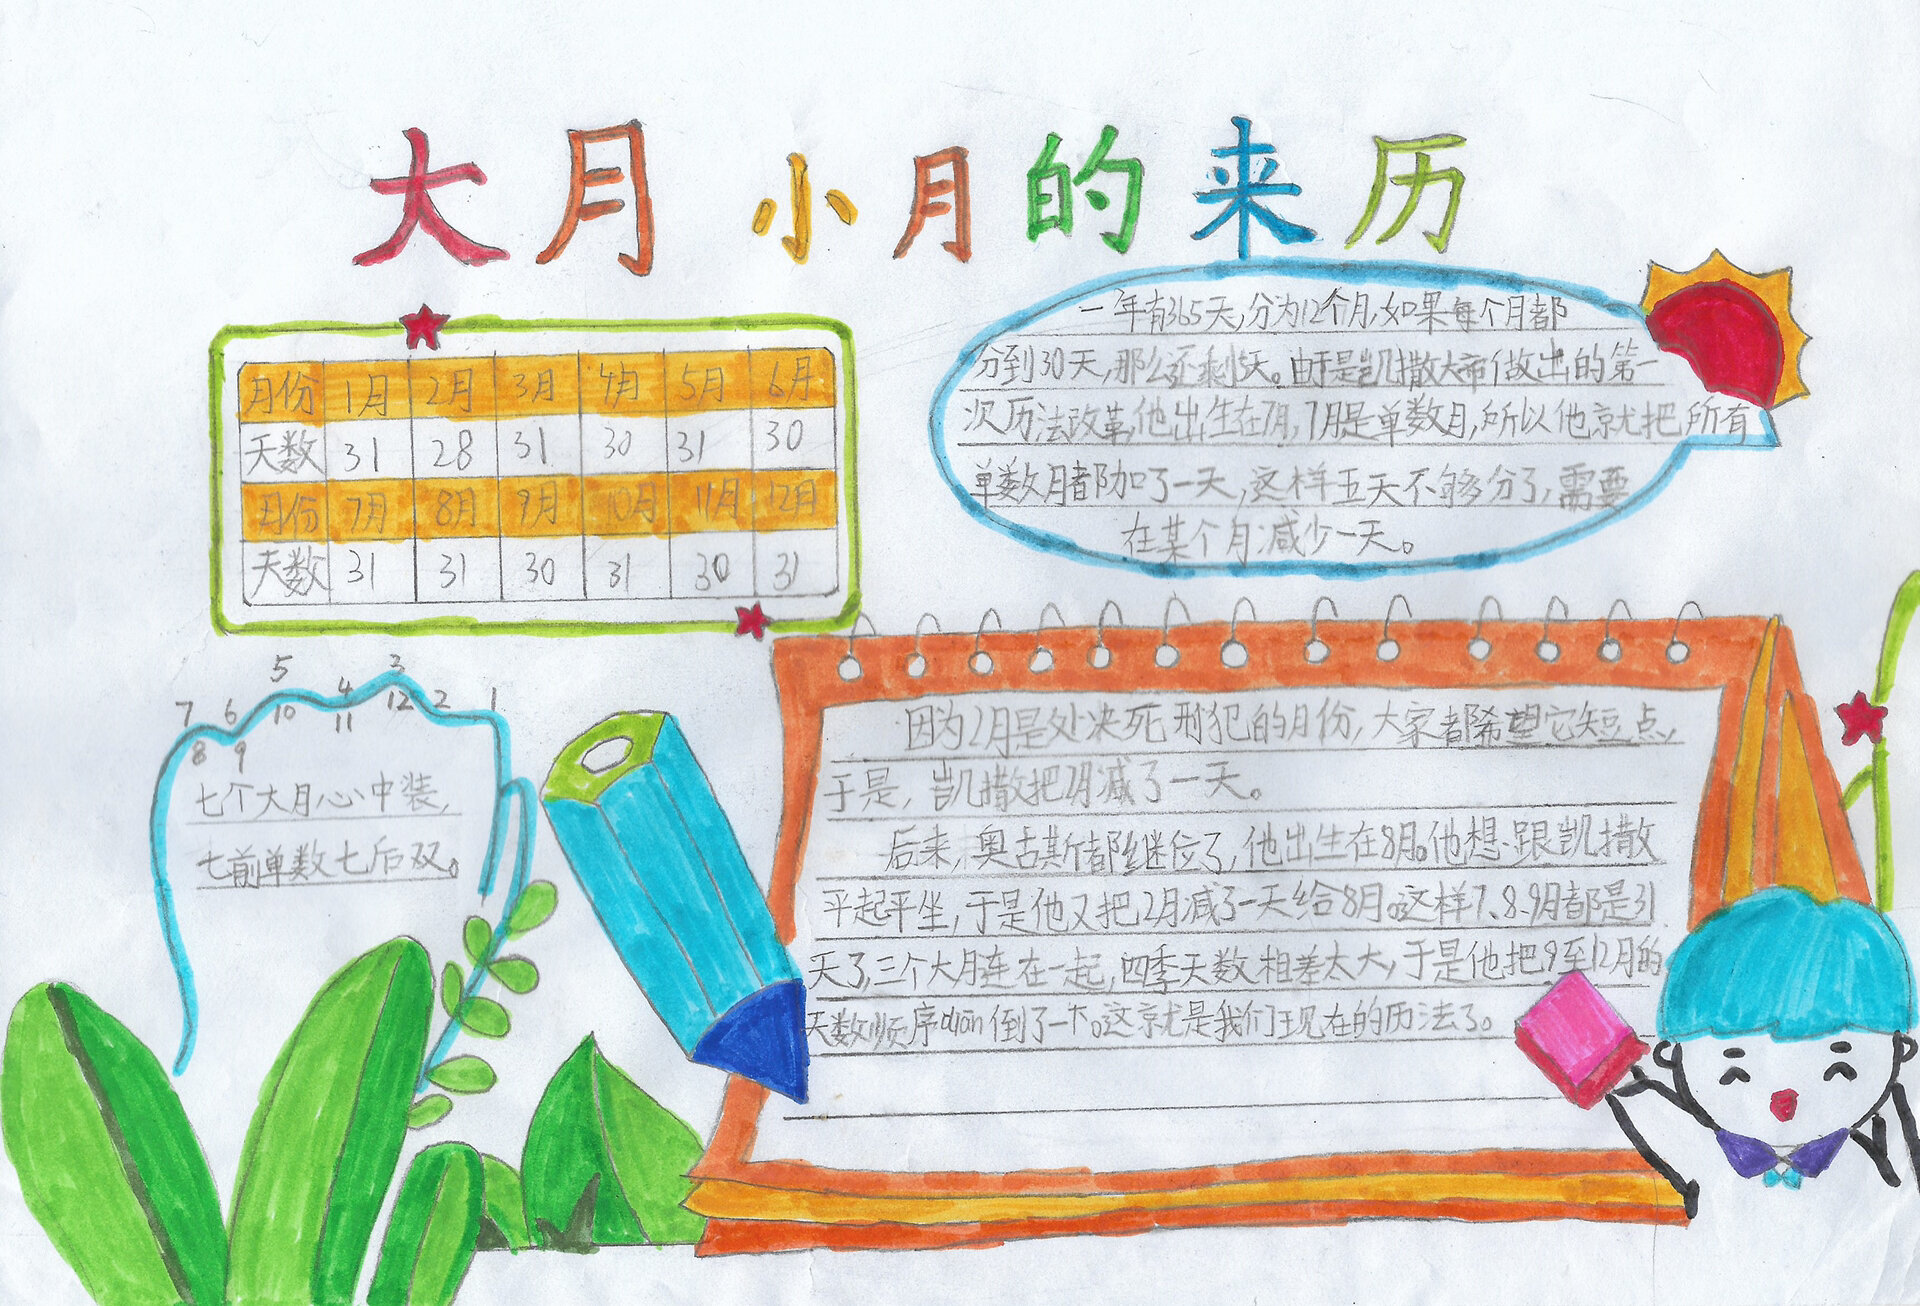 大月小月的来历
月份 1月 2月 3月 4月 5月 6月
天数 31 28 31 30 31 30
月份 7月 8月 9月 10月 11月 12月
天数 31 31 30 31 30 31
一年有365天,分为12个月,如果每个月都
分到30天,那么还剩5天。由于是凯撒大帝做出的第一
次历法改革,他出生在7月,7月是单数月,所以他就把所有
单数月都加了一天,这样五天不够分了,需要
在某个月减少一天。
5 3
7 6 4 12 2 1
10 11
8 9
七个大月心中装,
七前单数七后双。
因为2月是处决死刑犯的月份,大家都希望它短点,
于是,凯撒把2月减了一天。
后来,奥古斯都继位了,他出生在8月。他想跟凯撒
平起平坐,于是他又把2月减了一天给8月。这样7、8、9月都是31
天了,三个大月连在一起,四季天数相差太大,于是他把9至12月的
天数顺序diān倒了一下。这就是我们现在的历法了。